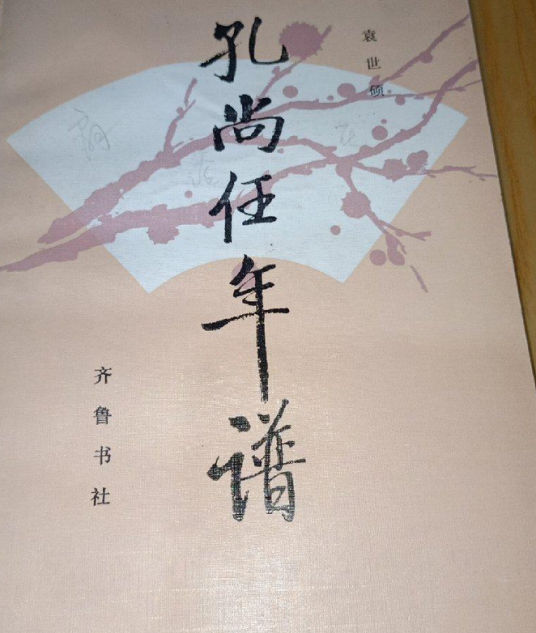 孔尚任年谱
袁世硕
齐鲁书社